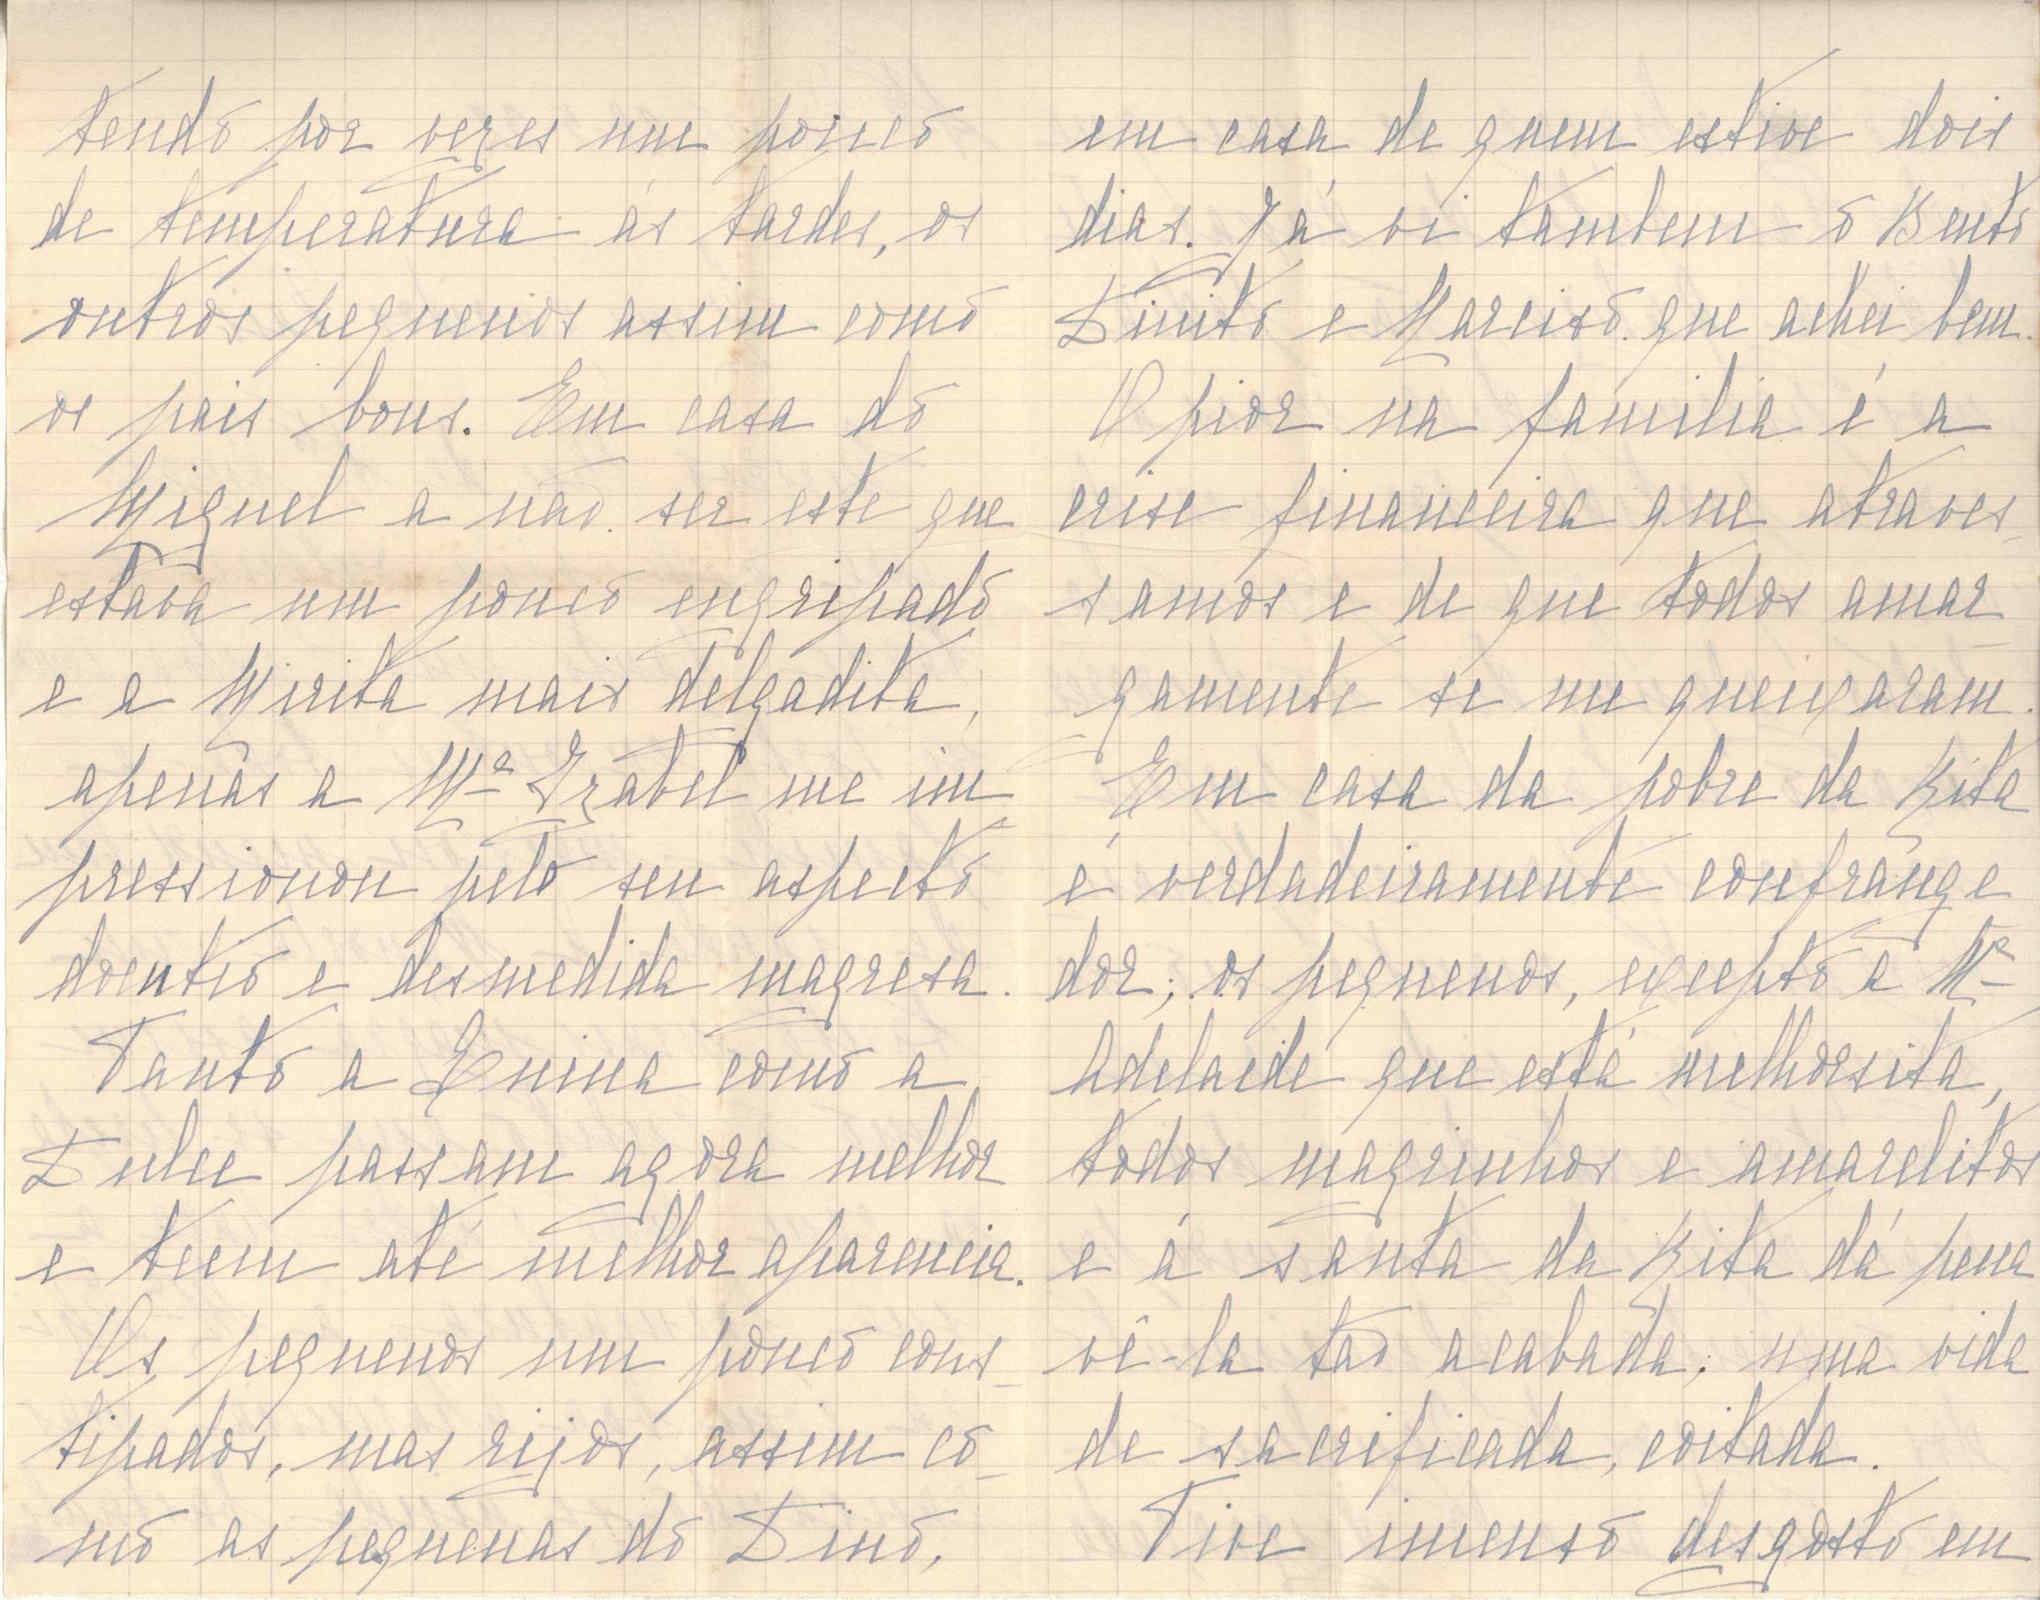 tendo por vezes um pouco
de temperatura ás tardes, os
outros pequenos assim como
os pais bons. Em casa do
Miguel a não ser este que
estava um pouco engripado
e a Mirita mais delgadita,
apenas a Mª Izabel me im
pressionou pelo seu aspecto
doentio e desmedida magresa.
Tanto a Enina como a
Dulce passam agora melhor
e teem até melhor aparencia.
Os pequenos um pouco cons_
tipados, mas rijos, assim co_
mo as pequenas do Dino,
em casa de quem estive dois
dias. Já vi tambem o Bento
Dinito e Narciso. que achei bem.
O pior na familia é a
crise financeira que atraves_
samos e de que todos amar_
gamente se me queixaram.
Em casa da pobre da Rita
é verdadeiramente confrange
dor; os pequenos, excepto a Mª
Adelaide que está melhorsita,
todos magrinhos e amarelitos
e á santa da Rita dá pena
vê-la tão acabada; uma vida
de sacrificada, coitada.
Tive imenso desgosto em